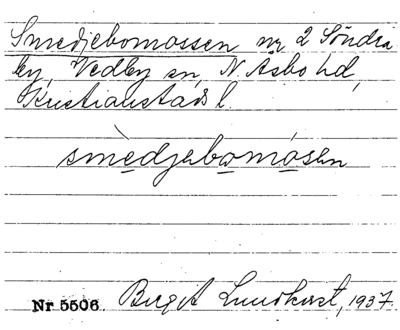 Smedjebomossen nr 2 Söndra
by, Vedby sn, N. Åsbo hd,
Kristianstads l.
smèdjebomósen
Nr 5506. Birgit Lundkvist, 1937.